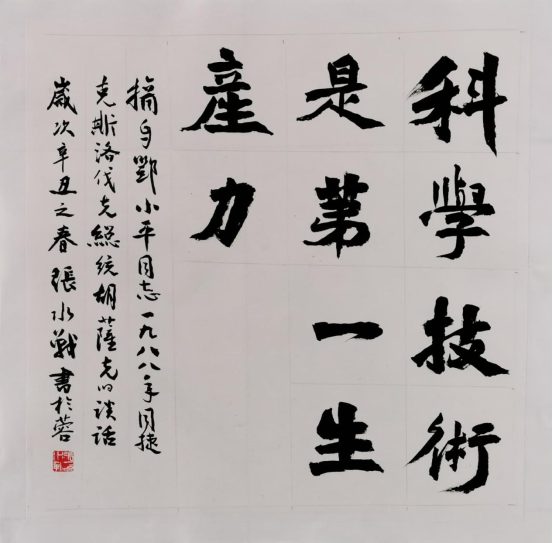 科學技術
是第一生
產力
摘自鄧小平同志一九八八年同捷
克斯洛伐克總统胡薩克的谈话
歲次辛丑之春張水戰書於蓉